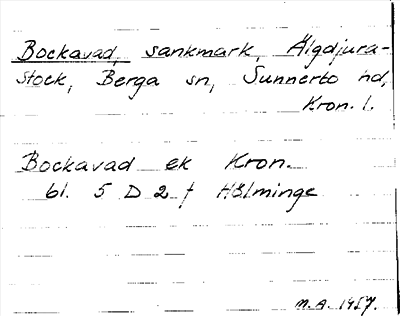 Bockavad, sankmark, Älgdjura-
stock, Berga sn, Sunnerbo hd,
Kron. l.
Bockavad ek Kron.
bl. 5 D 2 f Hölminge
M.A. 1957.